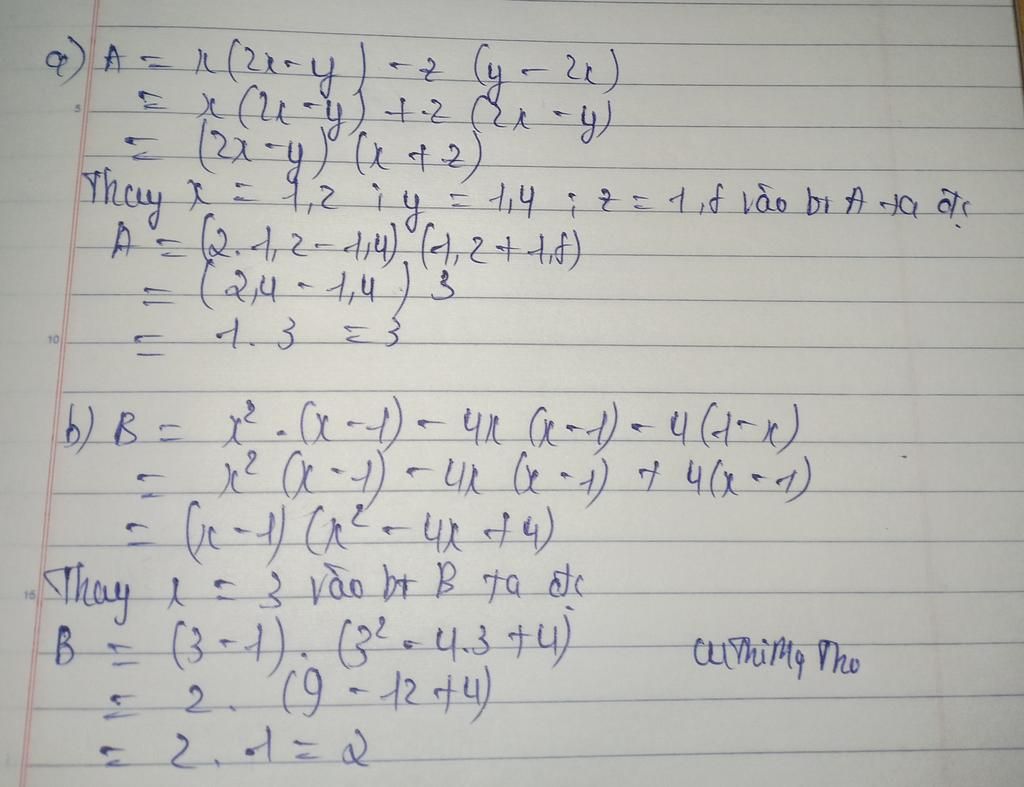 a) A = x(2x-y) - z (y - 2x)
= x(2x-y) + z (2x - y)
= (2x-y) (x + z)
Thay x = 1,2 ; y = 1,4 ; z = 1,8 vào bt A ta đc
A = (2.1,2 - 1,4) (1,2 + 1,8)
= (2,4 - 1,4) 3
= 1.3 = 3
b) B = x² . (x - 1) - 4x (x - 1) - 4(1 - x)
= x² (x - 1) - 4x (x - 1) + 4(x - 1)
= (x - 1) (x² - 4x + 4)
Thay x = 3 vào bt B ta đc
B = (3 - 1) . (3² - 4.3 + 4)
= 2 . (9 - 12 + 4)
= 2 . 1 = 2